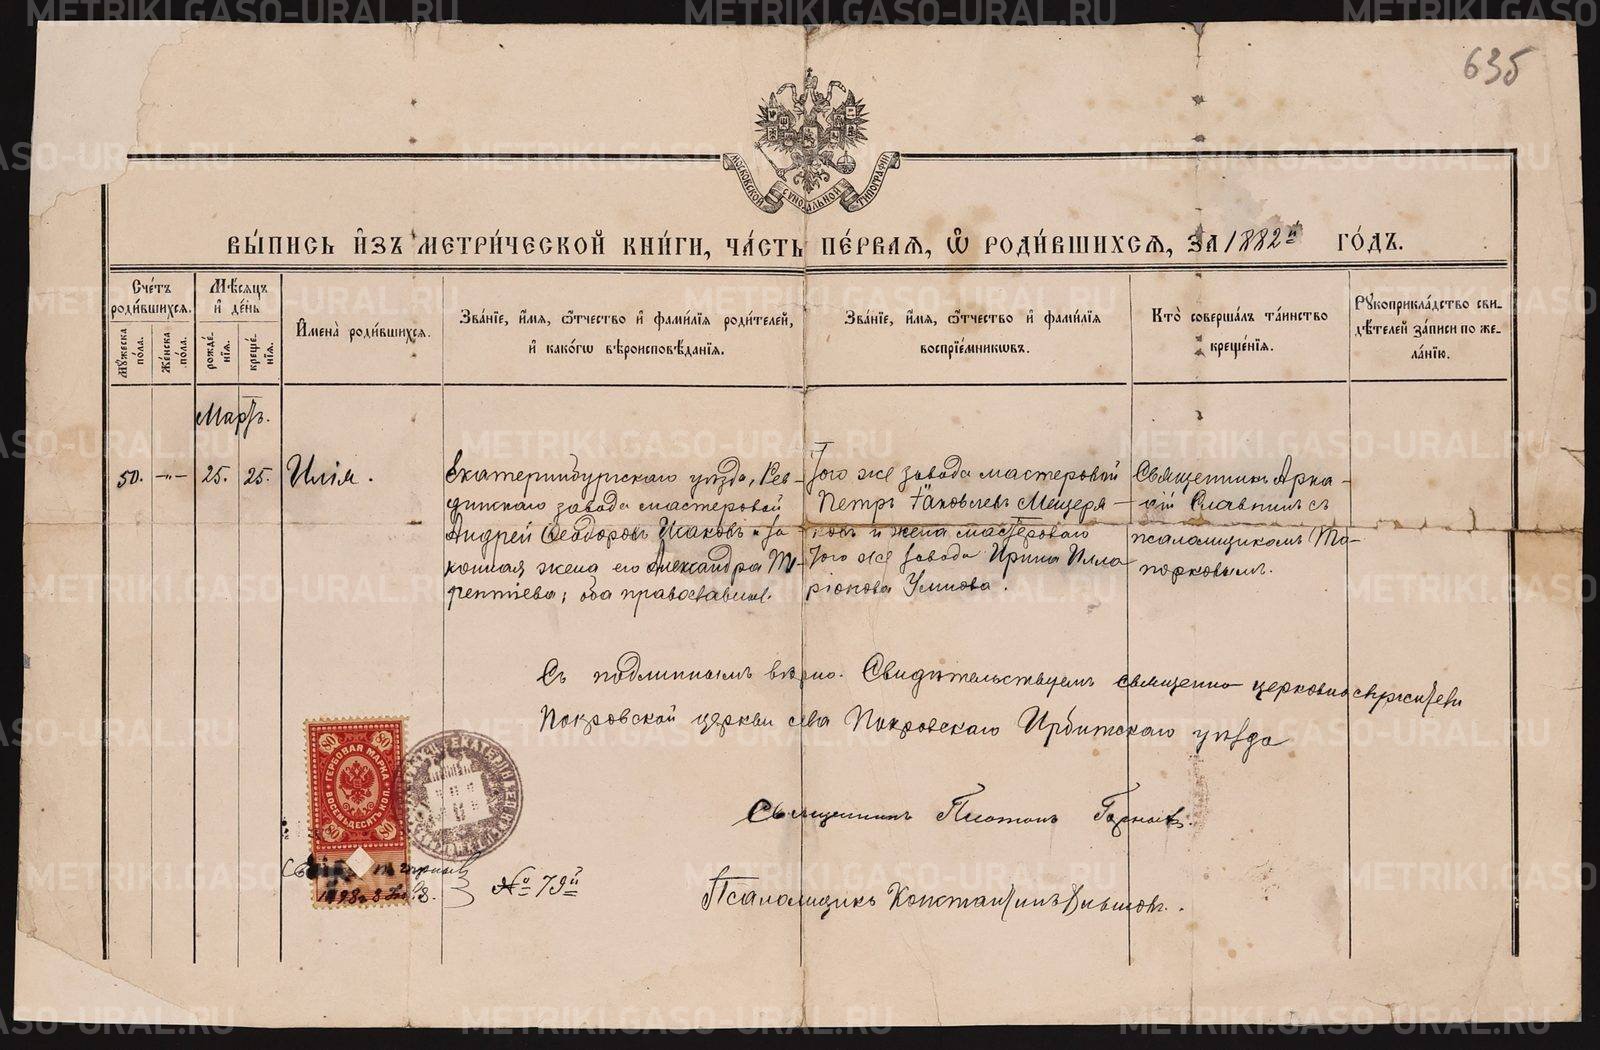 635
МОСКОВСКОЙ СѴНОДАЛЬНОЙ ТИПОГРАФІИ
ВЫ́ПИСЬ И҆ЗЪ МЕТРИ́ЧЕСКОЙ КНИ́ГИ, ЧА́СТЬ ПЕ́РВАѦ, Ѡ҆ РОДИ́ВШИХСѦ, ЗА 1882й ГО́ДЪ.
Сче́тъ роди́вшихсѧ.
Мꙋ́жеска по́ла.
Же́нска по́ла.
Мѣ́сѧцъ и҆ де́нь
рожде́нїѧ.
креще́нїѧ.
И҆мена̀ роди́вшихсѧ.
Зва́нїе, и҆́мѧ, ѻ҆́тчество и҆ фами́лїѧ роди́телей,
и҆ како́гѡ вѣроисповѣ́данїѧ.
Зва́нїе, и҆́мѧ, ѻ҆́тчество и҆ фами́лїѧ
воспрїе́мникѡвъ.
Кто̀ соверша́лъ та́инство
креще́нїѧ.
Рꙋкоприкла́дство сви-
дѣ́телей за́писи по же-
ла́нїю.
Мартъ.
50. -"- 25. 25. Илія.
Екатеринбургскаго уѣзда, Рев-
динскаго завода мастеровой
Андрей Ѳеодоровъ Исаковъ и за
конная жена его Александра Те-
рентіева; оба православнаг.
Того же завода мастеровой
Петръ Іаковлевъ Мещеря-
ковъ и жена мастероваго
того же завода Ирина Илла
ріонова Умнова.
Священникъ Арка-
дій Славнинъ съ
псаломщикомъ То-
порковымъ.
Съ подлиннымъ вѣрно. Свидѣтельствуемъ священно-церковнослужители
Покровской церкви села Покровскаго Ирбитскаго уѣзда
Священникъ Платонъ
Псаломщикъ Константинъ
№ 79й
80 80
ГЕРБОВАЯ МАРКА
ВОСЕМЬДЕСЯТЪ КОП.
80 80
METRIKI.GASO-URAL.RU